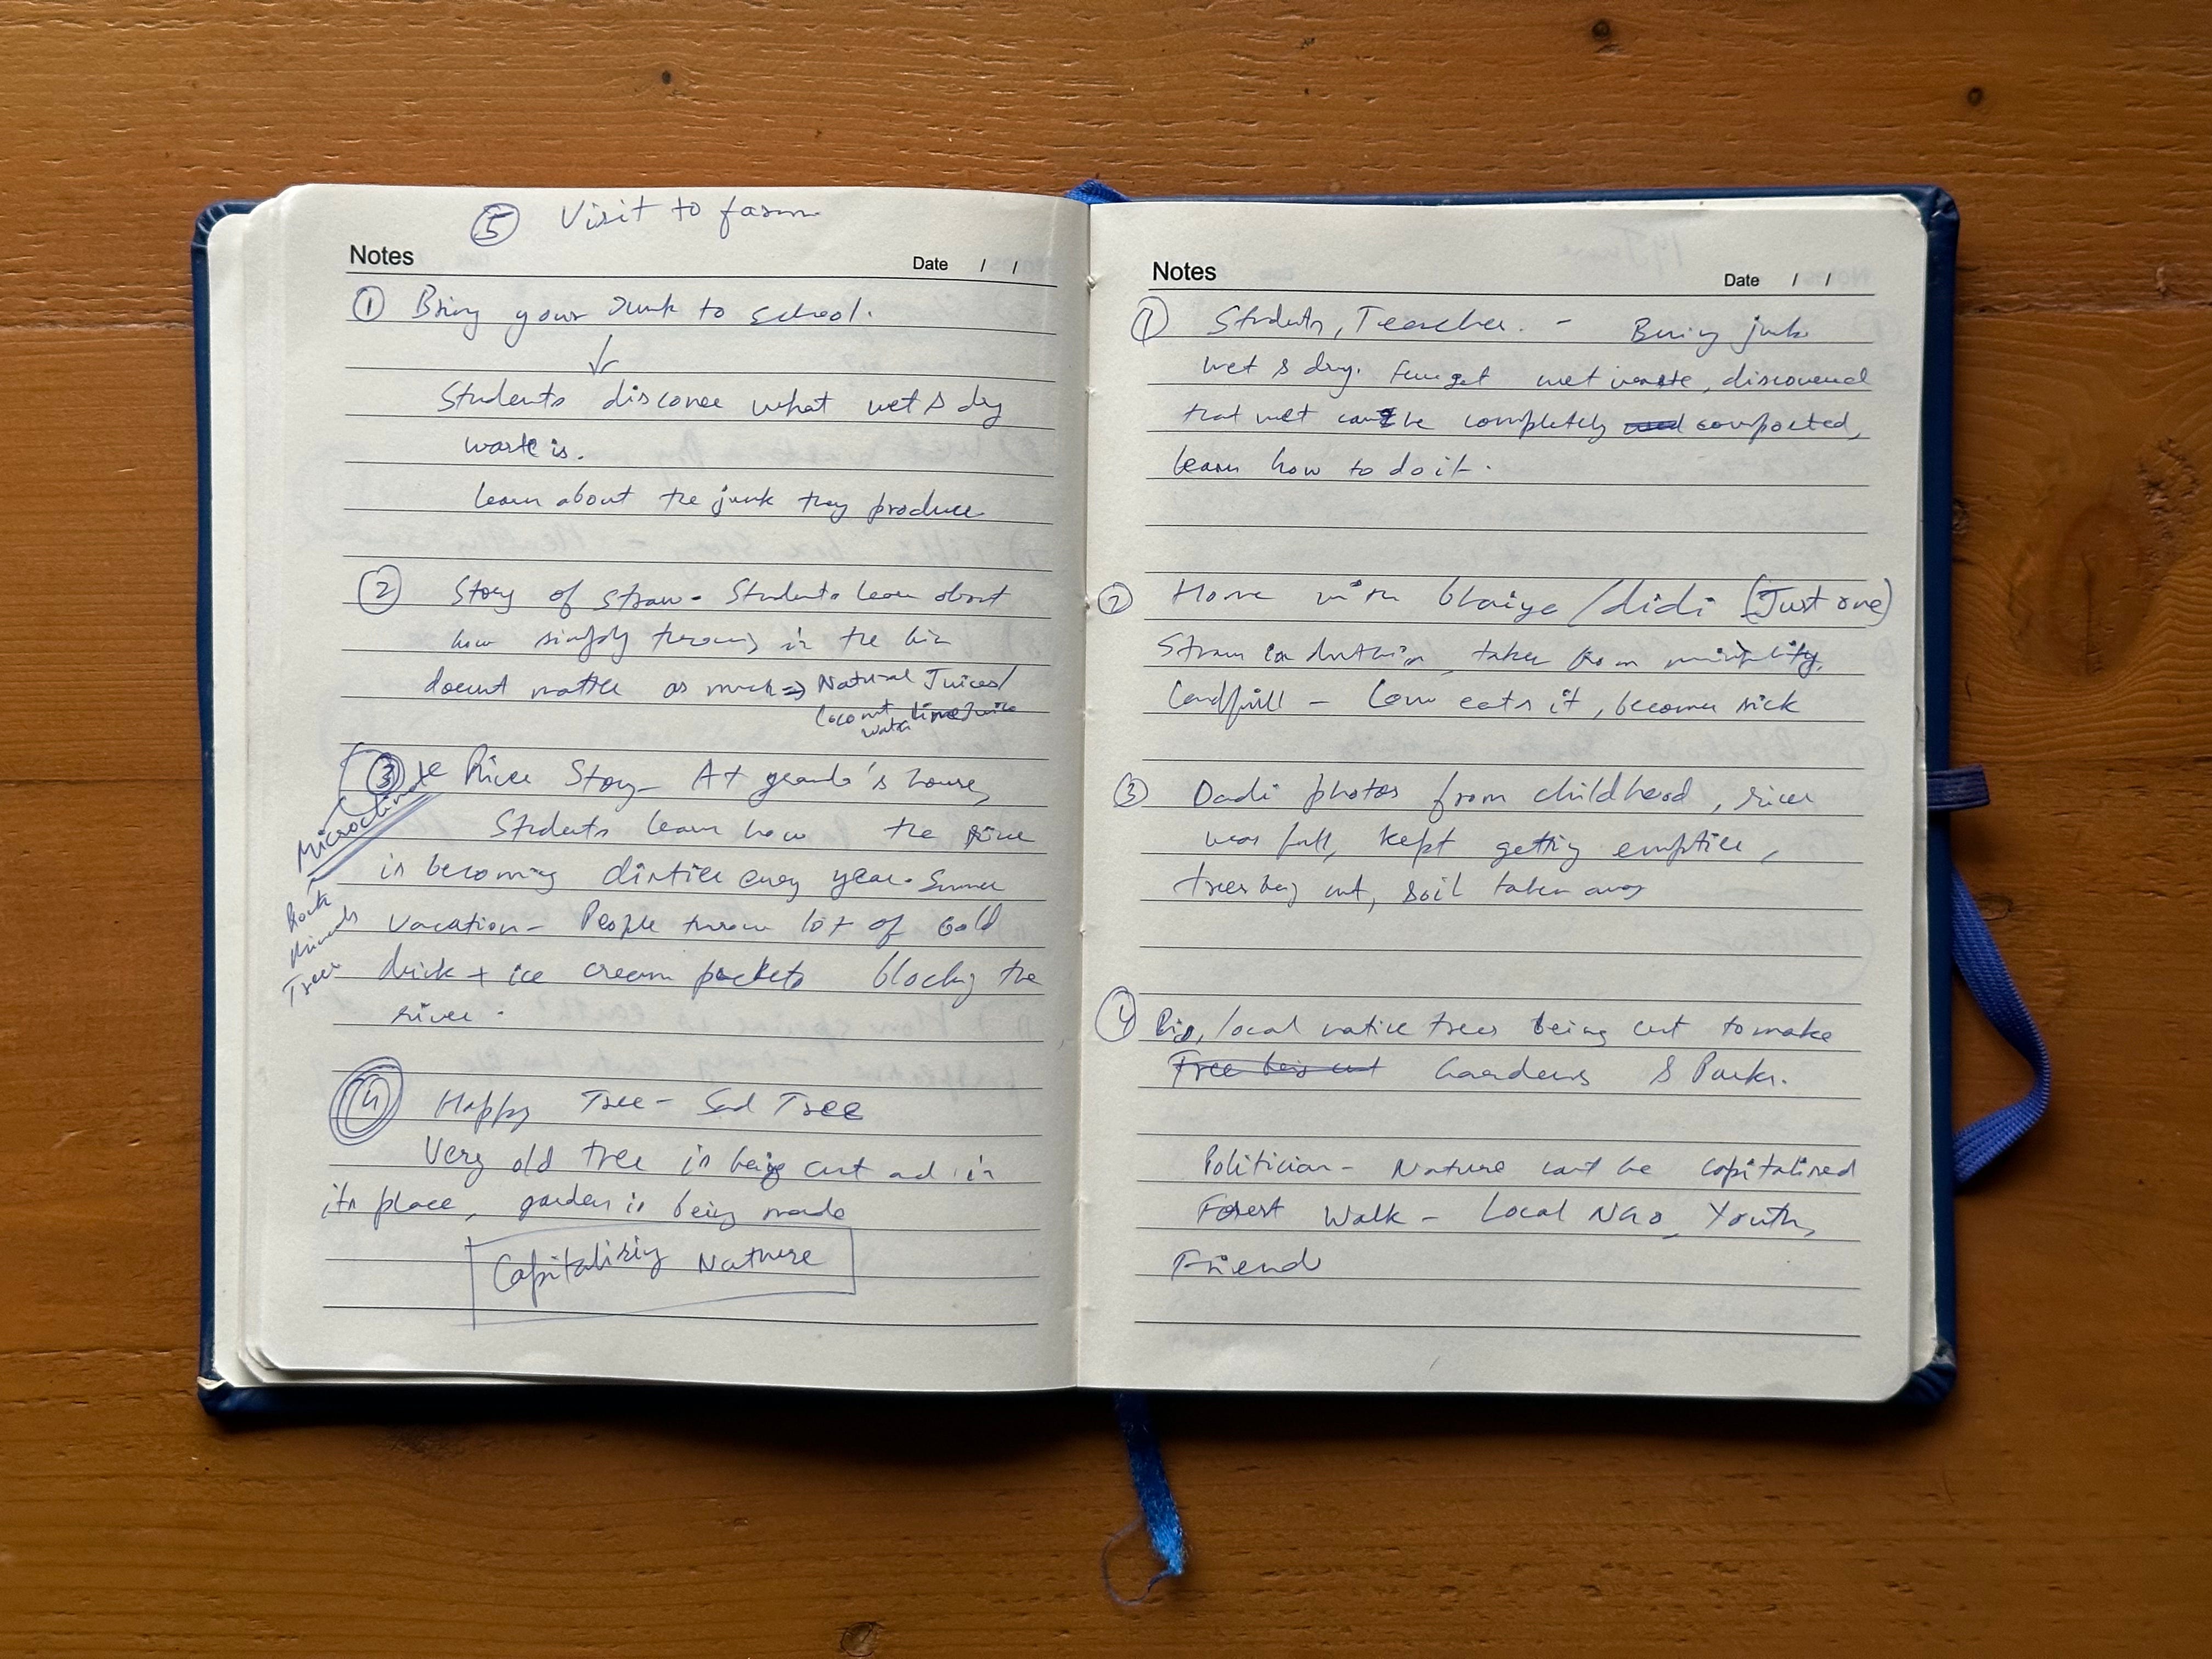 ⑤ Visit to farm
Notes
Date / /
① Bring your Junk to school.
↓
Students discover what wet & dry
waste is.
learn about the junk they produce
② Story of straw - Students learn about
how simply throwing in the bin
doesnt matter as much ⇒ Natural Juices/
Coconut water lime Juice
③ River Story - At grands's house,
Students learn how the river
is becoming dirtier every year. Summer
vacation - People throw lot of cold
drink + ice cream packets blocking the
river.
Microclimate
Trees
④ Happy Tree - Sad Tree
Very old tree is being cut and in
its place, garden is being made
Capitalising Nature
Notes
Date / /
① Students, Teacher. - Bring junk
wet & dry. wet waste, discovered
that wet can be completely composted,
learn how to do it.
② Home with bhaiya/didi (Just one)
Straw in dustbin, taken from municiplity,
landfill - Cow eats it, becomes sick
③ Dadi photos from childhood, river
was full, kept getting emptier,
trees being cut, soil taken away
④ Big, local native trees being cut to make
Tree being cut Gardens & Parks.
Politician - Nature cant be capitalised
Forest Walk - Local NGO, Youth,
Friend